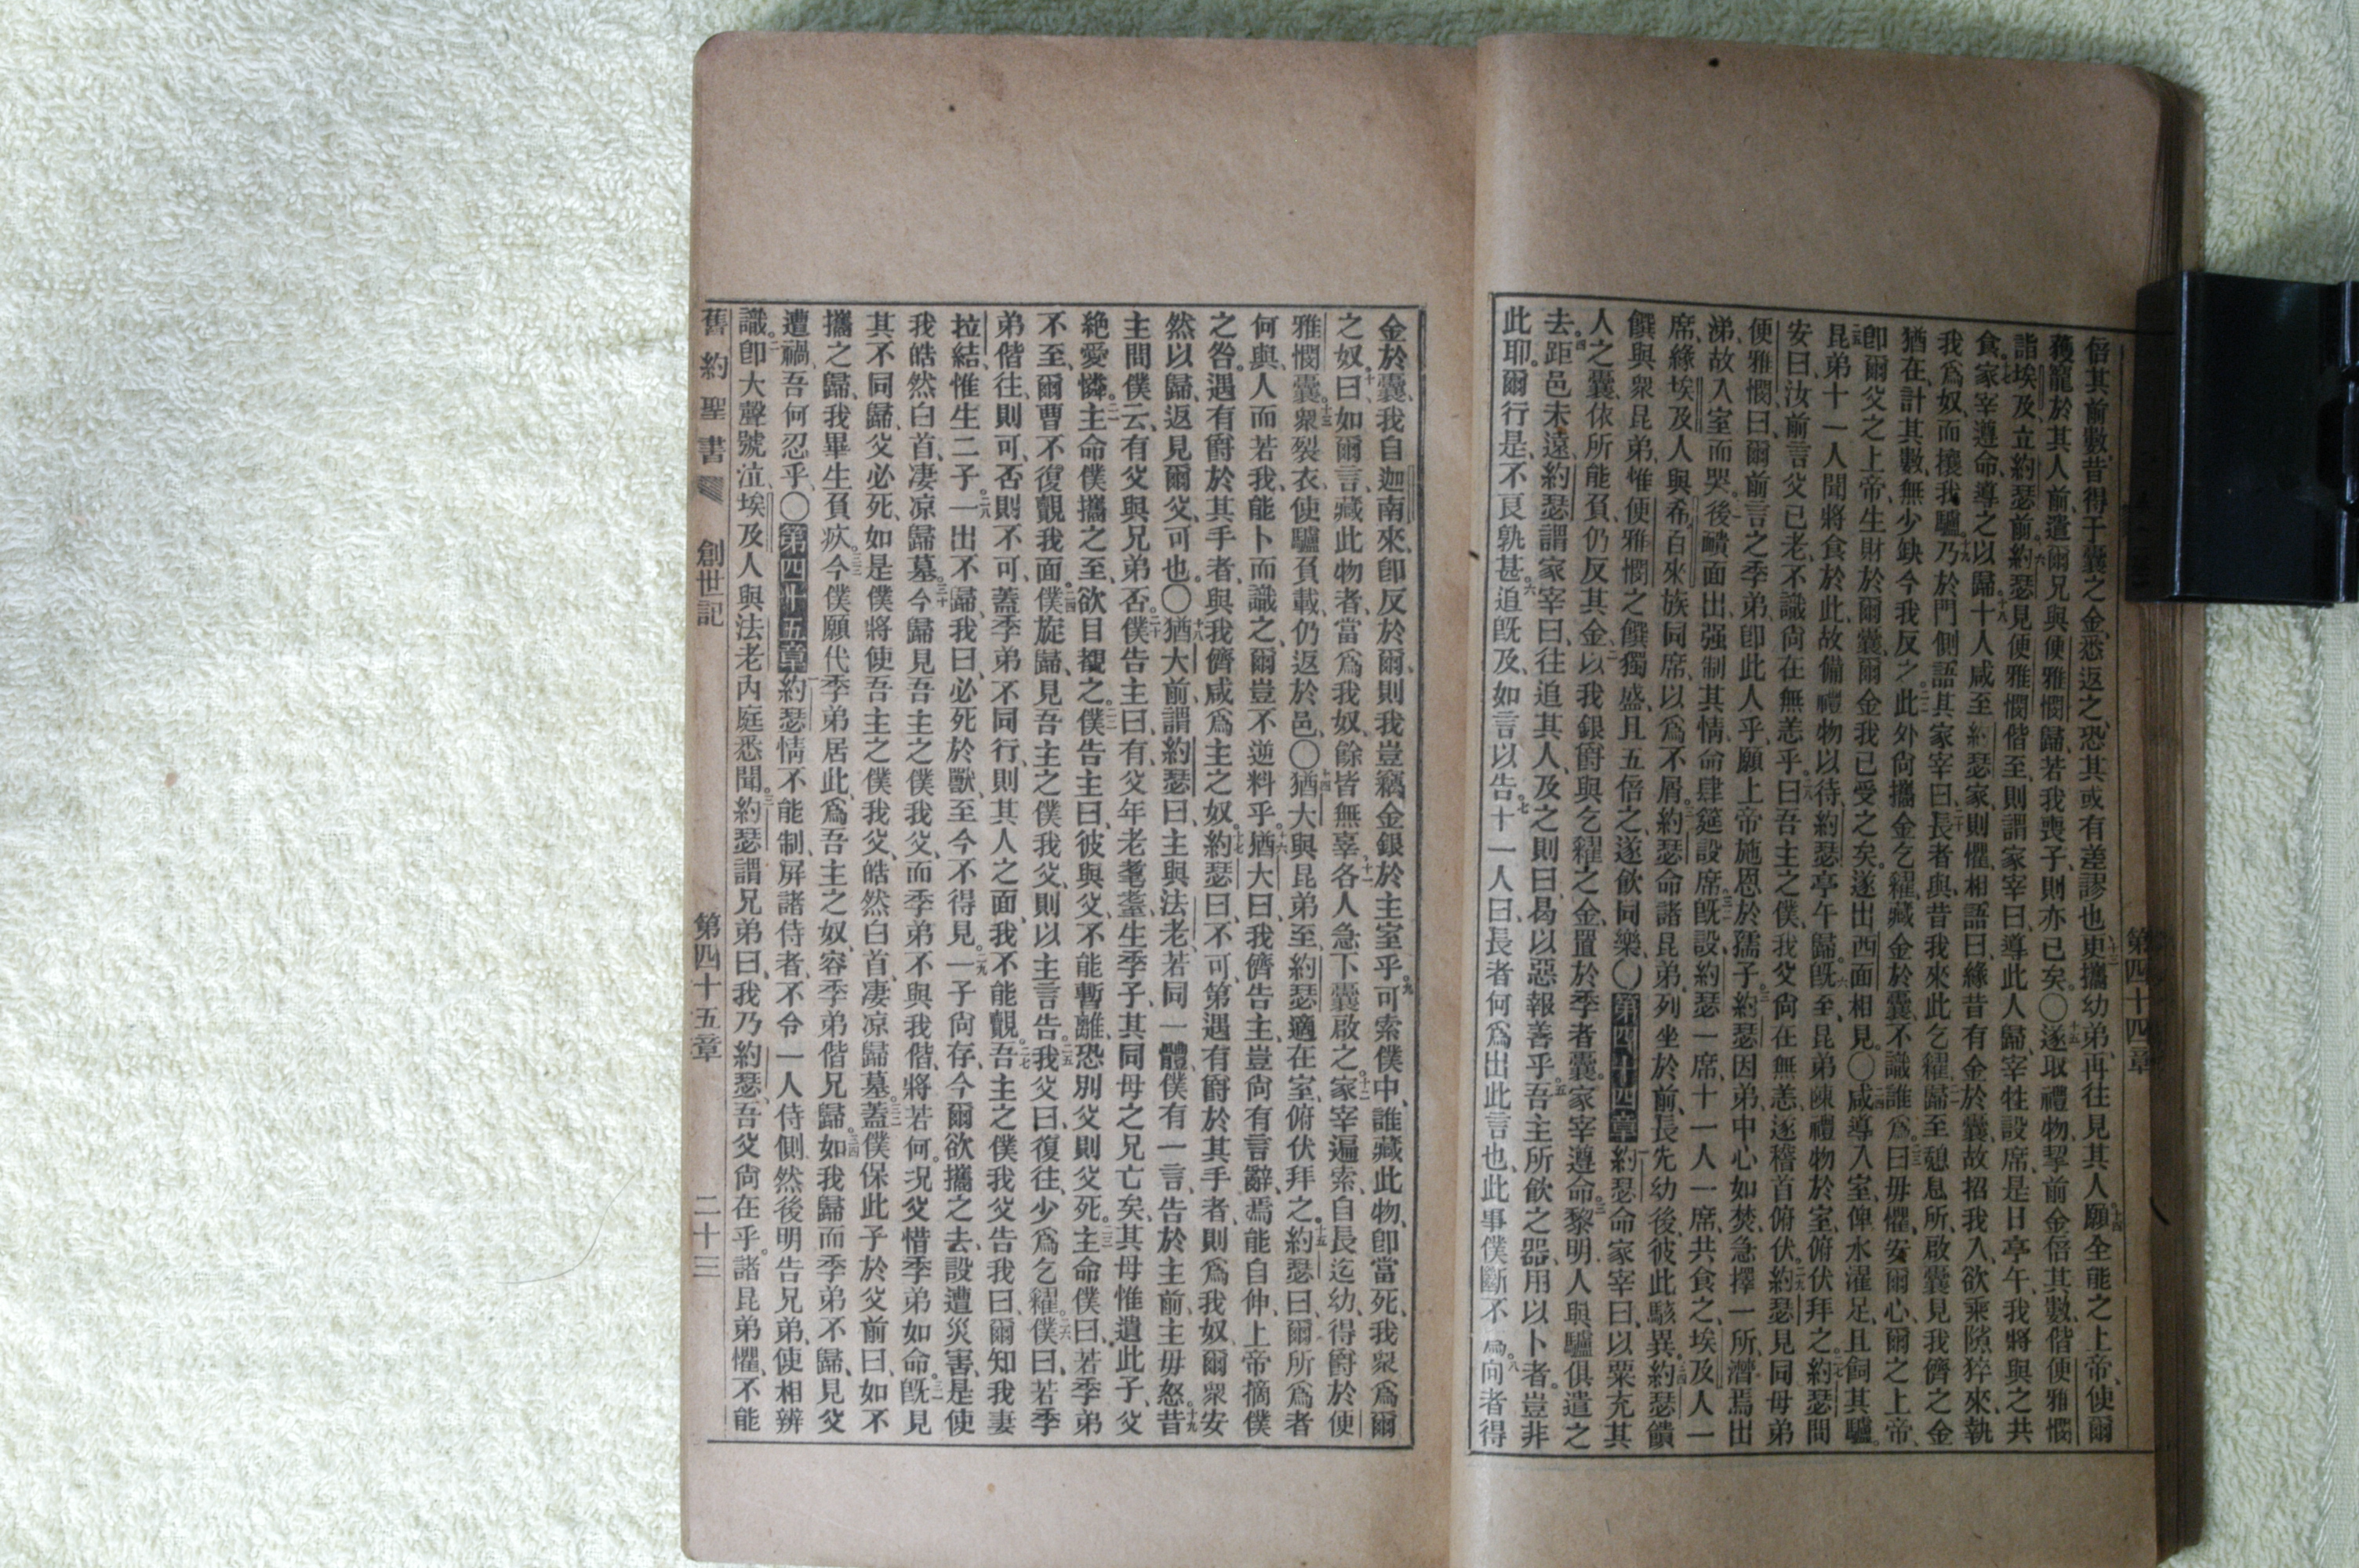 倍其前數、昔得于囊之金、悉返之、恐其或有差謬也、十三更攜幼弟、再往見其人、十四願全能之上帝、使爾
獲寵於其人前、遣爾兄與便雅憫歸、若我喪子、則亦已矣。〇十五遂取禮物、挈前金倍其數、偕便雅憫
詣埃及、立約瑟前。十六約瑟見便雅憫偕至、則謂家宰曰、導此人歸、宰牲設席、是日亭午、我將與之共
食。十七家宰遵命、導之以歸。十八十人咸至約瑟家、則懼、相語曰、緣昔有金於囊、故招我入、欲乘隙猝來、執
我爲奴、而攘我驢。十九乃於門側語其家宰曰、二十長者與、昔我來此乞糴、二一歸至憩息所、啟囊見我儕之金
猶在、計其數、無少缺、今我反之。二二此外尙攜金乞糴、藏金於囊、不識誰爲。二三曰毋懼、安爾心、爾之上帝、
卽爾父之上帝、生財於爾囊、爾金我已受之矣。遂出西面相見。〇二四咸導入室、俾水濯足、且飼其驢。
二五昆弟十一人聞將食於此、故備禮物以待、約瑟亭午歸。二六旣至、昆弟陳禮物於室、俯伏拜之。二七約瑟問
安曰、汝前言父已老、不識尙在無恙乎。二八曰吾主之僕、我父尙在無恙、遂稽首俯伏。二九約瑟見同母弟
便雅憫曰、爾前言之季弟、卽此人乎、願上帝施恩於孺子。三十約瑟因弟、中心如焚、急擇一所、濳焉出
涕、故入室而哭。三一後靧面出、强制其情、命肆筵設席。三二旣設、約瑟一席、十一人一席、共食之埃及人一
席、緣埃及人與希百來族同席、以爲不屑。三三約瑟命諸昆弟列坐於前、長先幼後、彼此駭異。三四約瑟饋
饌與衆昆弟、惟便雅憫之饌獨盛、且五倍之、遂飮同樂。〇第四十四章一約瑟命家宰曰、以粟充其
人之囊、依所能負、仍反其金。二以我銀爵與乞糴之金、置於季者囊。家宰遵命。三黎明、人與驢俱遣之
去。四距邑未遠、約瑟謂家宰曰、往追其人、及之則曰、曷以惡報善乎。五吾主所飮之器、用以卜者。豈非
此耶。爾行是、不良孰甚。六追旣及、如言以告。七十一人曰、長者何爲出此言也、此事僕斷不爲。八向者得
第四十四章
金於囊、我自迦南來、卽反於爾、則我豈竊金銀於主室乎。九可索僕中、誰藏此物、卽當死、我衆爲爾
之奴。十曰、如爾言、藏此物者、當爲我奴、餘皆無辜。十一各人急下囊啟之。十二家宰遍索、自長迄幼、得爵於便
雅憫囊。十三衆裂衣、使驢負載、仍返於邑、〇十四猶大與昆弟至、約瑟適在室、俯伏拜之。十五約瑟曰、爾所爲者
何與、人而若我、能卜而識之、爾豈不逆料乎。十六猶大曰、我儕告主、豈尙有言辭、焉能自伸、上帝摘僕
之咎。遇有爵於其手者、與我儕咸爲主之奴。十七約瑟曰、不可、第遇有爵於其手者、則爲我奴、爾衆安
然以歸、返見爾父、可也。〇十八猶大前謂約瑟曰、主與法老、若同一體、僕有一言、告於主前、主毋怒。十九昔
主問僕云、有父與兄弟否。二十僕告主曰、有父年老耄耋、生季子、其同母之兄亡矣、其母惟遺此子、父
絕愛憐。二一主命僕攜之至、欲目視之。二二僕告主曰、彼與父、不能暫離、恐別父則父死。二三主命僕曰、若季弟
不至、爾曹不復覿我面。二四僕旋歸、見吾主之僕我父、則以主言告。二五我父曰、復往少爲乞糴。二六僕曰、若季
弟偕往、則可、否則不可、蓋季弟不同行、則其人之面、我不能覿。二七吾主之僕我父告我曰、爾知我妻
拉結、惟生二子。二八一出不歸、我曰、必死於獸、至今不得見。二九一子尙存、今爾欲攜之去、設遭災害、是使
我皓然白首、凄凉歸墓。三十今歸見吾主之僕我父、而季弟不與我偕、將若何。况父惜季弟如命。三一旣見
其不同歸、父必死、如是僕將使吾主之僕我父、皓然白首、凄凉歸墓。三二蓋僕保此子於父前曰、如不
攜之歸、我畢生負疚。三三今僕願代季弟居此、爲吾主之奴、容季弟偕兄歸。三四如我歸而季弟不歸、見父
遭禍、吾何忍乎、〇第四十五章一約瑟情不能制、屛諸侍者、不令一人侍側、然後明告兄弟、使相辨
識。二卽大聲號泣、埃及人與法老內庭悉聞。三約瑟謂兄弟曰、我乃約瑟、吾父尙在乎。諸昆弟懼、不能
舊約聖書 創世記 第四十五章 二十三